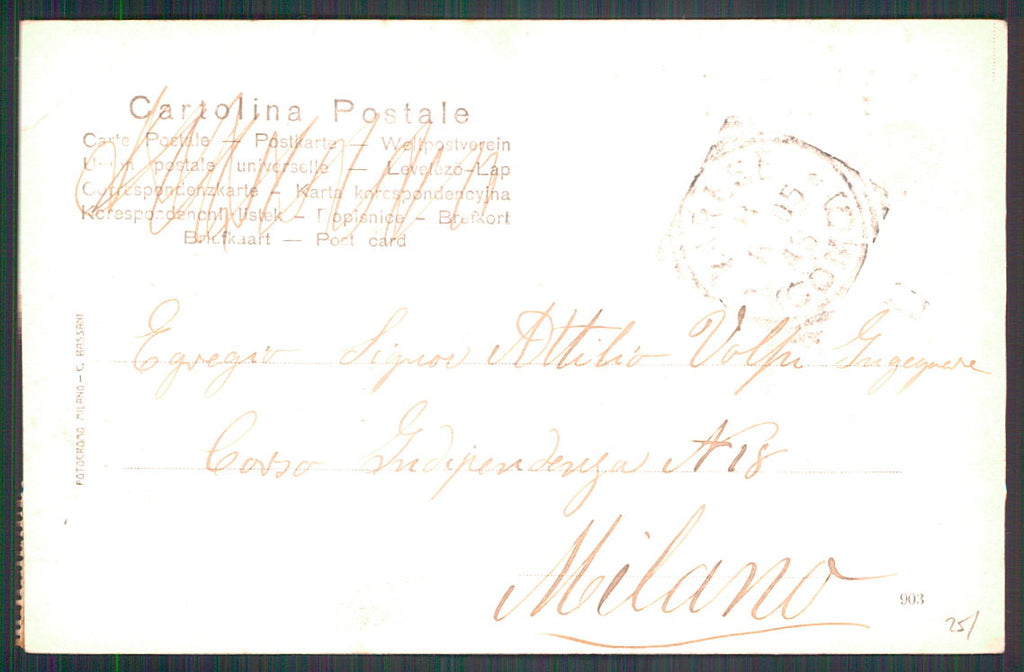 Cartolina Postale
Carte Postale — Postkarte — Weltpostverein
Union postale universelle — Levelező-Lap
Correspondenzkarte - Karta korespondencyjna
Korespondenčni listek - Dopisnice - Brefkort
Briefkaart — Post card
VARESE
(COMO)
FOTOCROMO MILANO - C. BASSANI
Egregio Signor Attilio Volpi Ingegnere
Corso Indipendenza N 18
Milano
903
25/